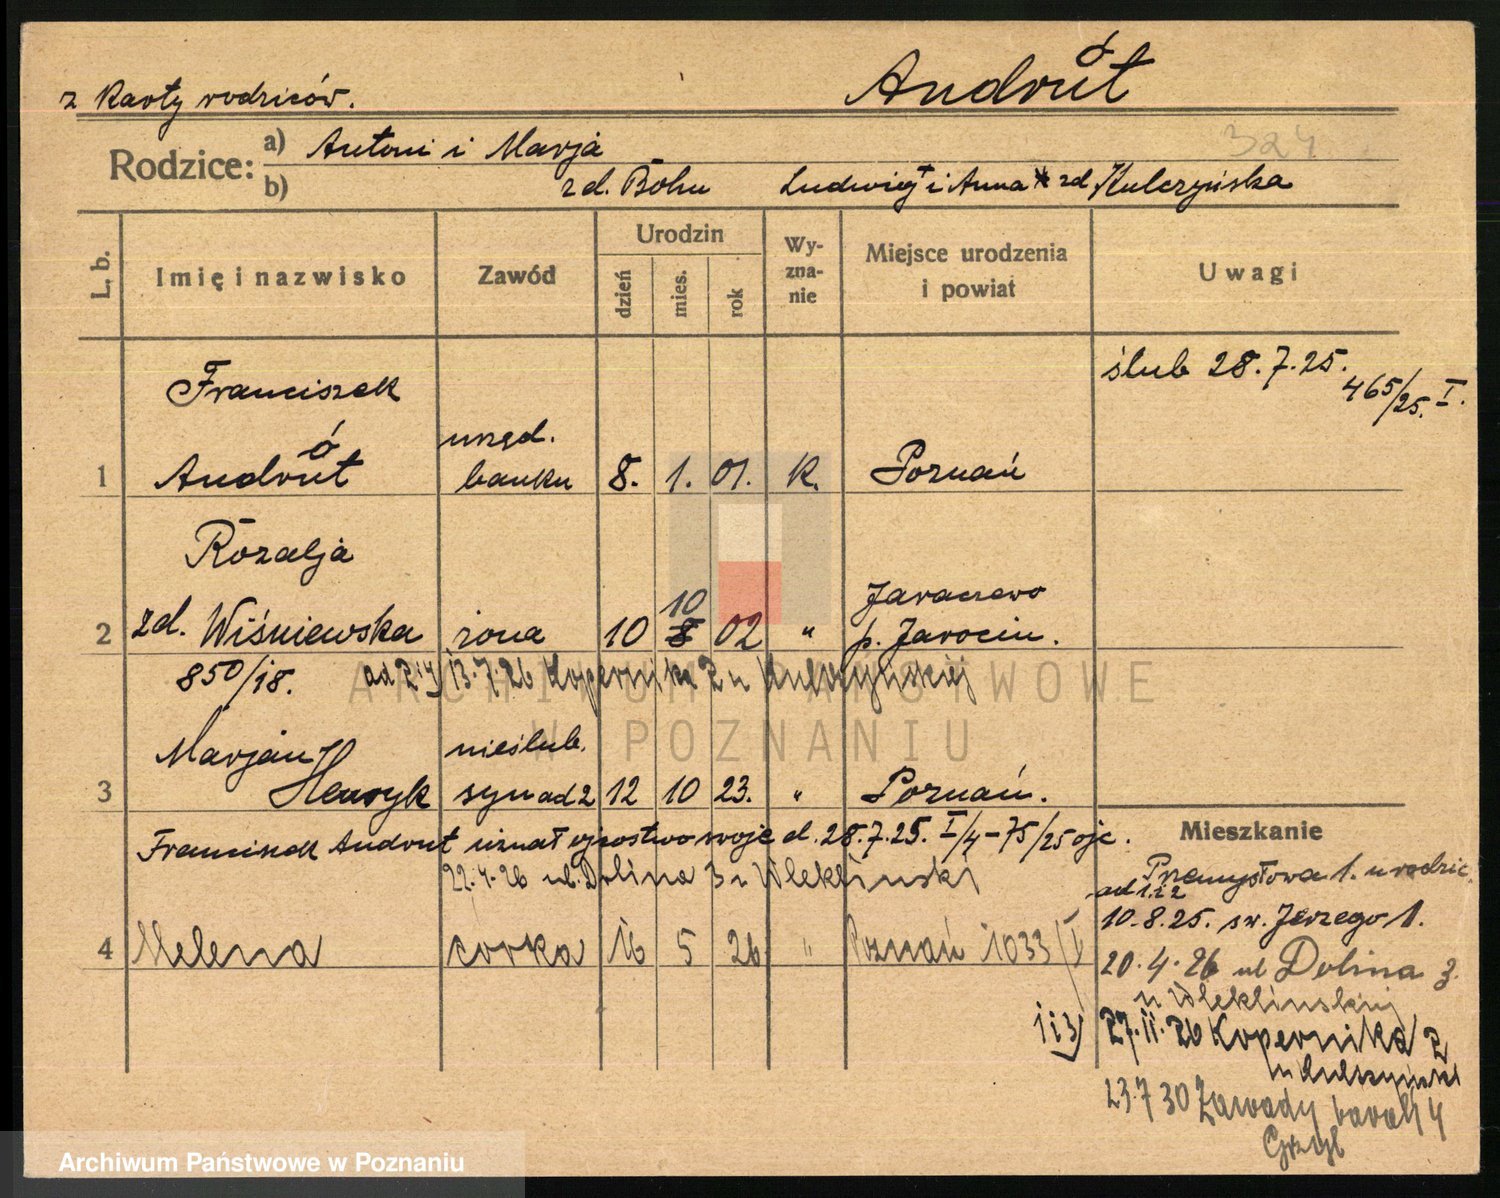 z Karty rodziców.
Andrót
324
Rodzice:
a) Antoni i Marja
b) zd. Böhu Ludwig † i Anna zd. Kulczyńska
L. b.
Imię i nazwisko
Zawód
Urodzin
dzień
mies.
rok
Wy-
zna-
nie
Miejsce urodzenia
i powiat
Uwagi
ślub 28.7.25.
465/25. I.
Franciszek
urzęd.
1 Andrót banku 8. 1. 01. K. Poznań
Rozalja
10 Jaraczewo
2 zd. Wiśniewska żona 10 8 02 " p. Jarocin.
850/18. ad 2 i 4 13.7.26 Kopernika 2 u Kulczyńskiej
Marjan nieślub.
3 Henryk syn ad 2 12 10 23. " Poznań.
Franciszek Andrut uznał ojcostwo swoje d. 28.7.25. I/4-75/25 ojc.
22.4.26 ul. Dolina 3 u Weklinski
4 Helena corka 16 5 26 " Poznań 1033/I
Mieszkanie
Przemysłowa 1. u rodzic.
ad 1. i 2
10.8.25. św. Jerzego 1.
20.4.26 ul Dolina 3.
u Weklinskiej
1 i 3) 27.11.26 Kopernika 2
u Kulczyński
23.7 30 Zawady barak 4
Grzyb
ARCHIWUM PAŃSTWOWE
W POZNANIU
Archiwum Państwowe w Poznaniu